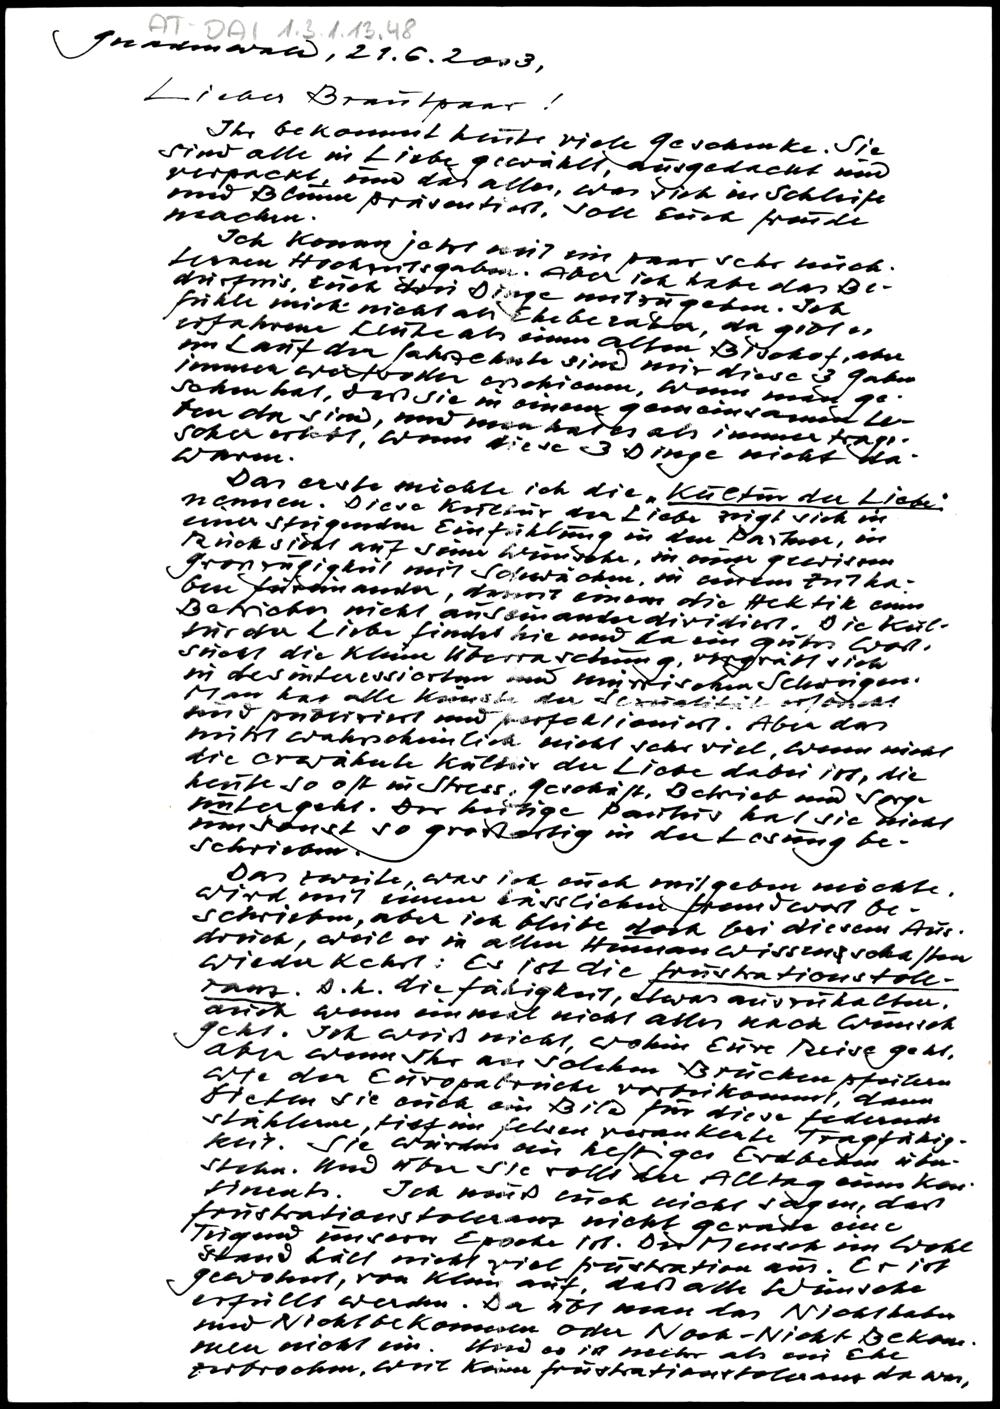 AT-DAI 1.3.1.13.48
Gnadenwald, 21.6.2003,
Liebes Brautpaar!
Ihr bekommt heute viele Geschenke. Sie
sind alle in Liebe gewählt, ausgedacht und
verpackt, und das alles, was sich in Schleife
und Blume präsentiert, soll Euch Freude
machen.
Ich komm jetzt mit ein paar sehr nüch-
ternen Hochzeitsgaben. Aber ich habe das Be-
dürfnis, Euch drei Dinge mitzugeben. Ich
fühle mich nicht als Eheberater, da gibt es
erfahrene Leute als einen alten Bischof, aber
im Lauf der Jahrzehnte sind mir diese 3 Gaben
immer wertvoller erschienen, wenn man ge-
sehen hat, daß sie in einem gemeinsamen Le-
ben da sind, und man hat es als immer tragi-
scher erlebt, wenn diese 3 Dinge nicht da-
waren.
Das erste möchte ich die „Kultur der Liebe"
nennen. Diese Kultur der Liebe zeigt sich in
einer steigenden Einfühlung in den Partner, in
Rücksicht auf seine Wünsche, in einer gewissen
Großzügigkeit mit Schwächen, in einem Zeitha-
ben füreinander, damit einem die Hektik eines
Betriebes nicht auseinanderdividiert. Die Kul-
tur der Liebe findet hie und da ein gutes Wort,
sucht die kleine Überraschung, vergräbt sich
in desinteressiertem und mürrischem Schweigen.
Man hat alle Künste der Sexualität erforscht
und publiziert und perfektioniert. Aber das
nützt wahrscheinlich nicht sehr viel, wenn nicht
die erwähnte Kultur der Liebe dabei ist, die
heute so oft in Stress, Geschäft, Betrieb und Sorge
untergeht. Der heilige Paulus hat sie nicht
umsonst so großartig in der Lesung be-
schrieben.
Das zweite, was ich euch mitgeben möchte,
wird mit einem hässlichen Fremdwort be-
schrieben, aber ich bleibe doch bei diesem Aus-
druck, weil er in allen Humanwissenschaften
wiederkehrt: Es ist die Frustrationstole-
ranz. D.h. die Fähigkeit, etwas auszuhalten,
auch wenn einmal nicht alles nach Wunsch
geht. Ich weiß nicht, wohin Eure Reise geht,
aber wenn Ihr an solchen Brückenpfeilern
wie der Europabrücke vorbeikommt, dann
bieten sie euch ein Bild für diese federnde
stählerne, tief im Felsen verankerte Tragfähig-
keit. Sie würden ein heftiges Erdbeben über-
stehn. Und über sie rollt der Alltag eines Kon-
tinents. Ich muß euch nicht sagen, daß
Frustrationstoleranz nicht gerade eine
Tugend unserer Epoche ist. Der Mensch im Wohl
stand hält nicht viel Frustration aus. Er ist
gewohnt, von klein auf, daß alle Wünsche
erfüllt werden. Da übt man das Nichthaben
und Nichtbekommen oder Noch-Nicht-Bekom-
men nicht ein. Und es ist mehr als eine Ehe
zerbrochen, weil keine Frustrationstoleranz da war,